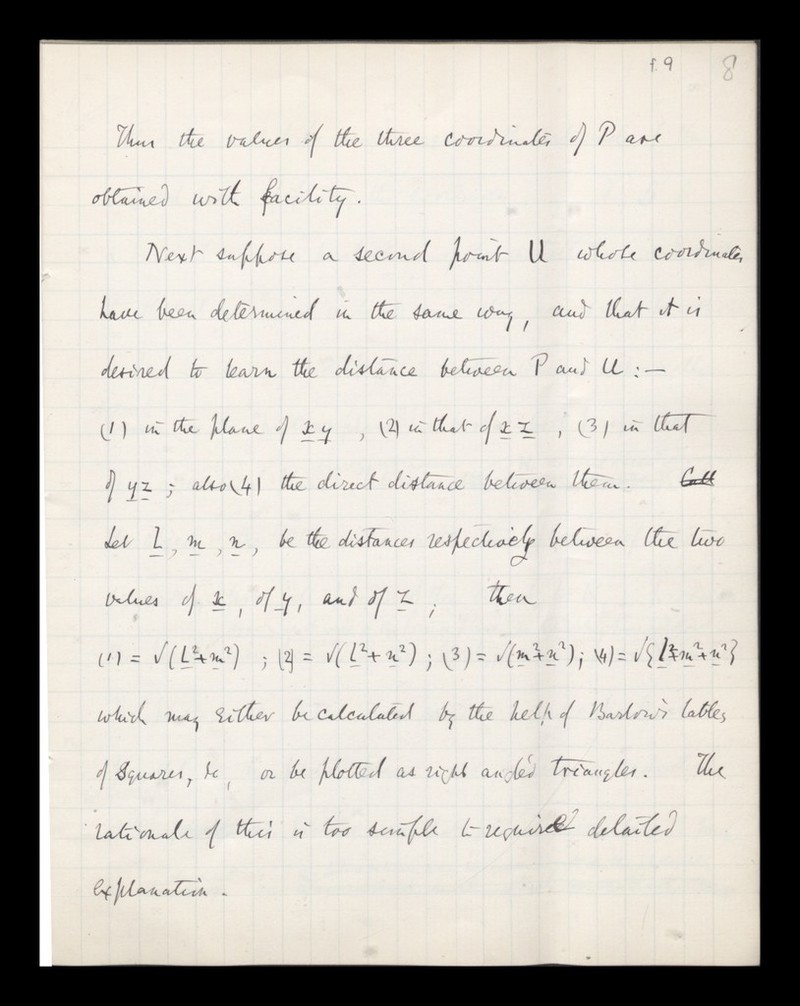 f. 9 8
Thus the values of the three coordinates of P are
obtained with facility.
Next suppose a second point U whose coordinates
have been determined in the same way, and that it is
desired to learn the distance between P and U :—
(1) in the plane of x y , (2) in that of x z , (3) in that
of yz ; also (4) the direct distance between them. Call
Let l, m, n, be the distances respectively between the two
values of x, of y, and of z ; then
(1) = √(l²+m²) ; (2) = √(l²+n²) ; (3) = √(m²+n²) ; (4) = √{l²+m²+n²}
which may either be calculated by the help of Barlow's tables
of Squares, &c, or be plotted as right angled triangles. The
rationale of this is too simple to require detailed
explanation.